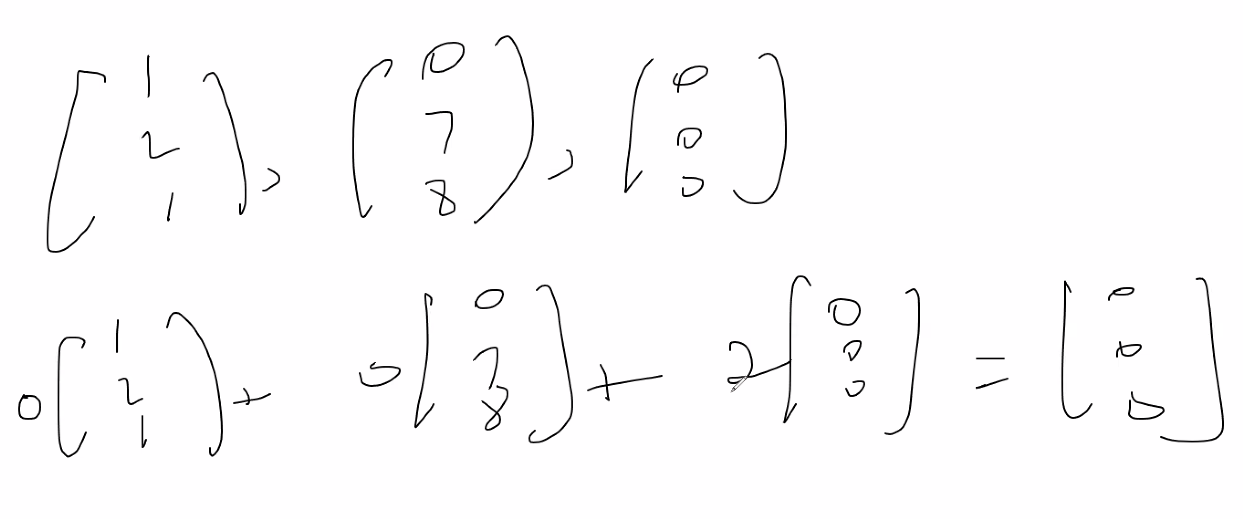 [1 2 1], [0 7 8], [0 0 0]
0[1 2 1] + 0[0 7 8] + 2[0 0 0] = [0 0 0]